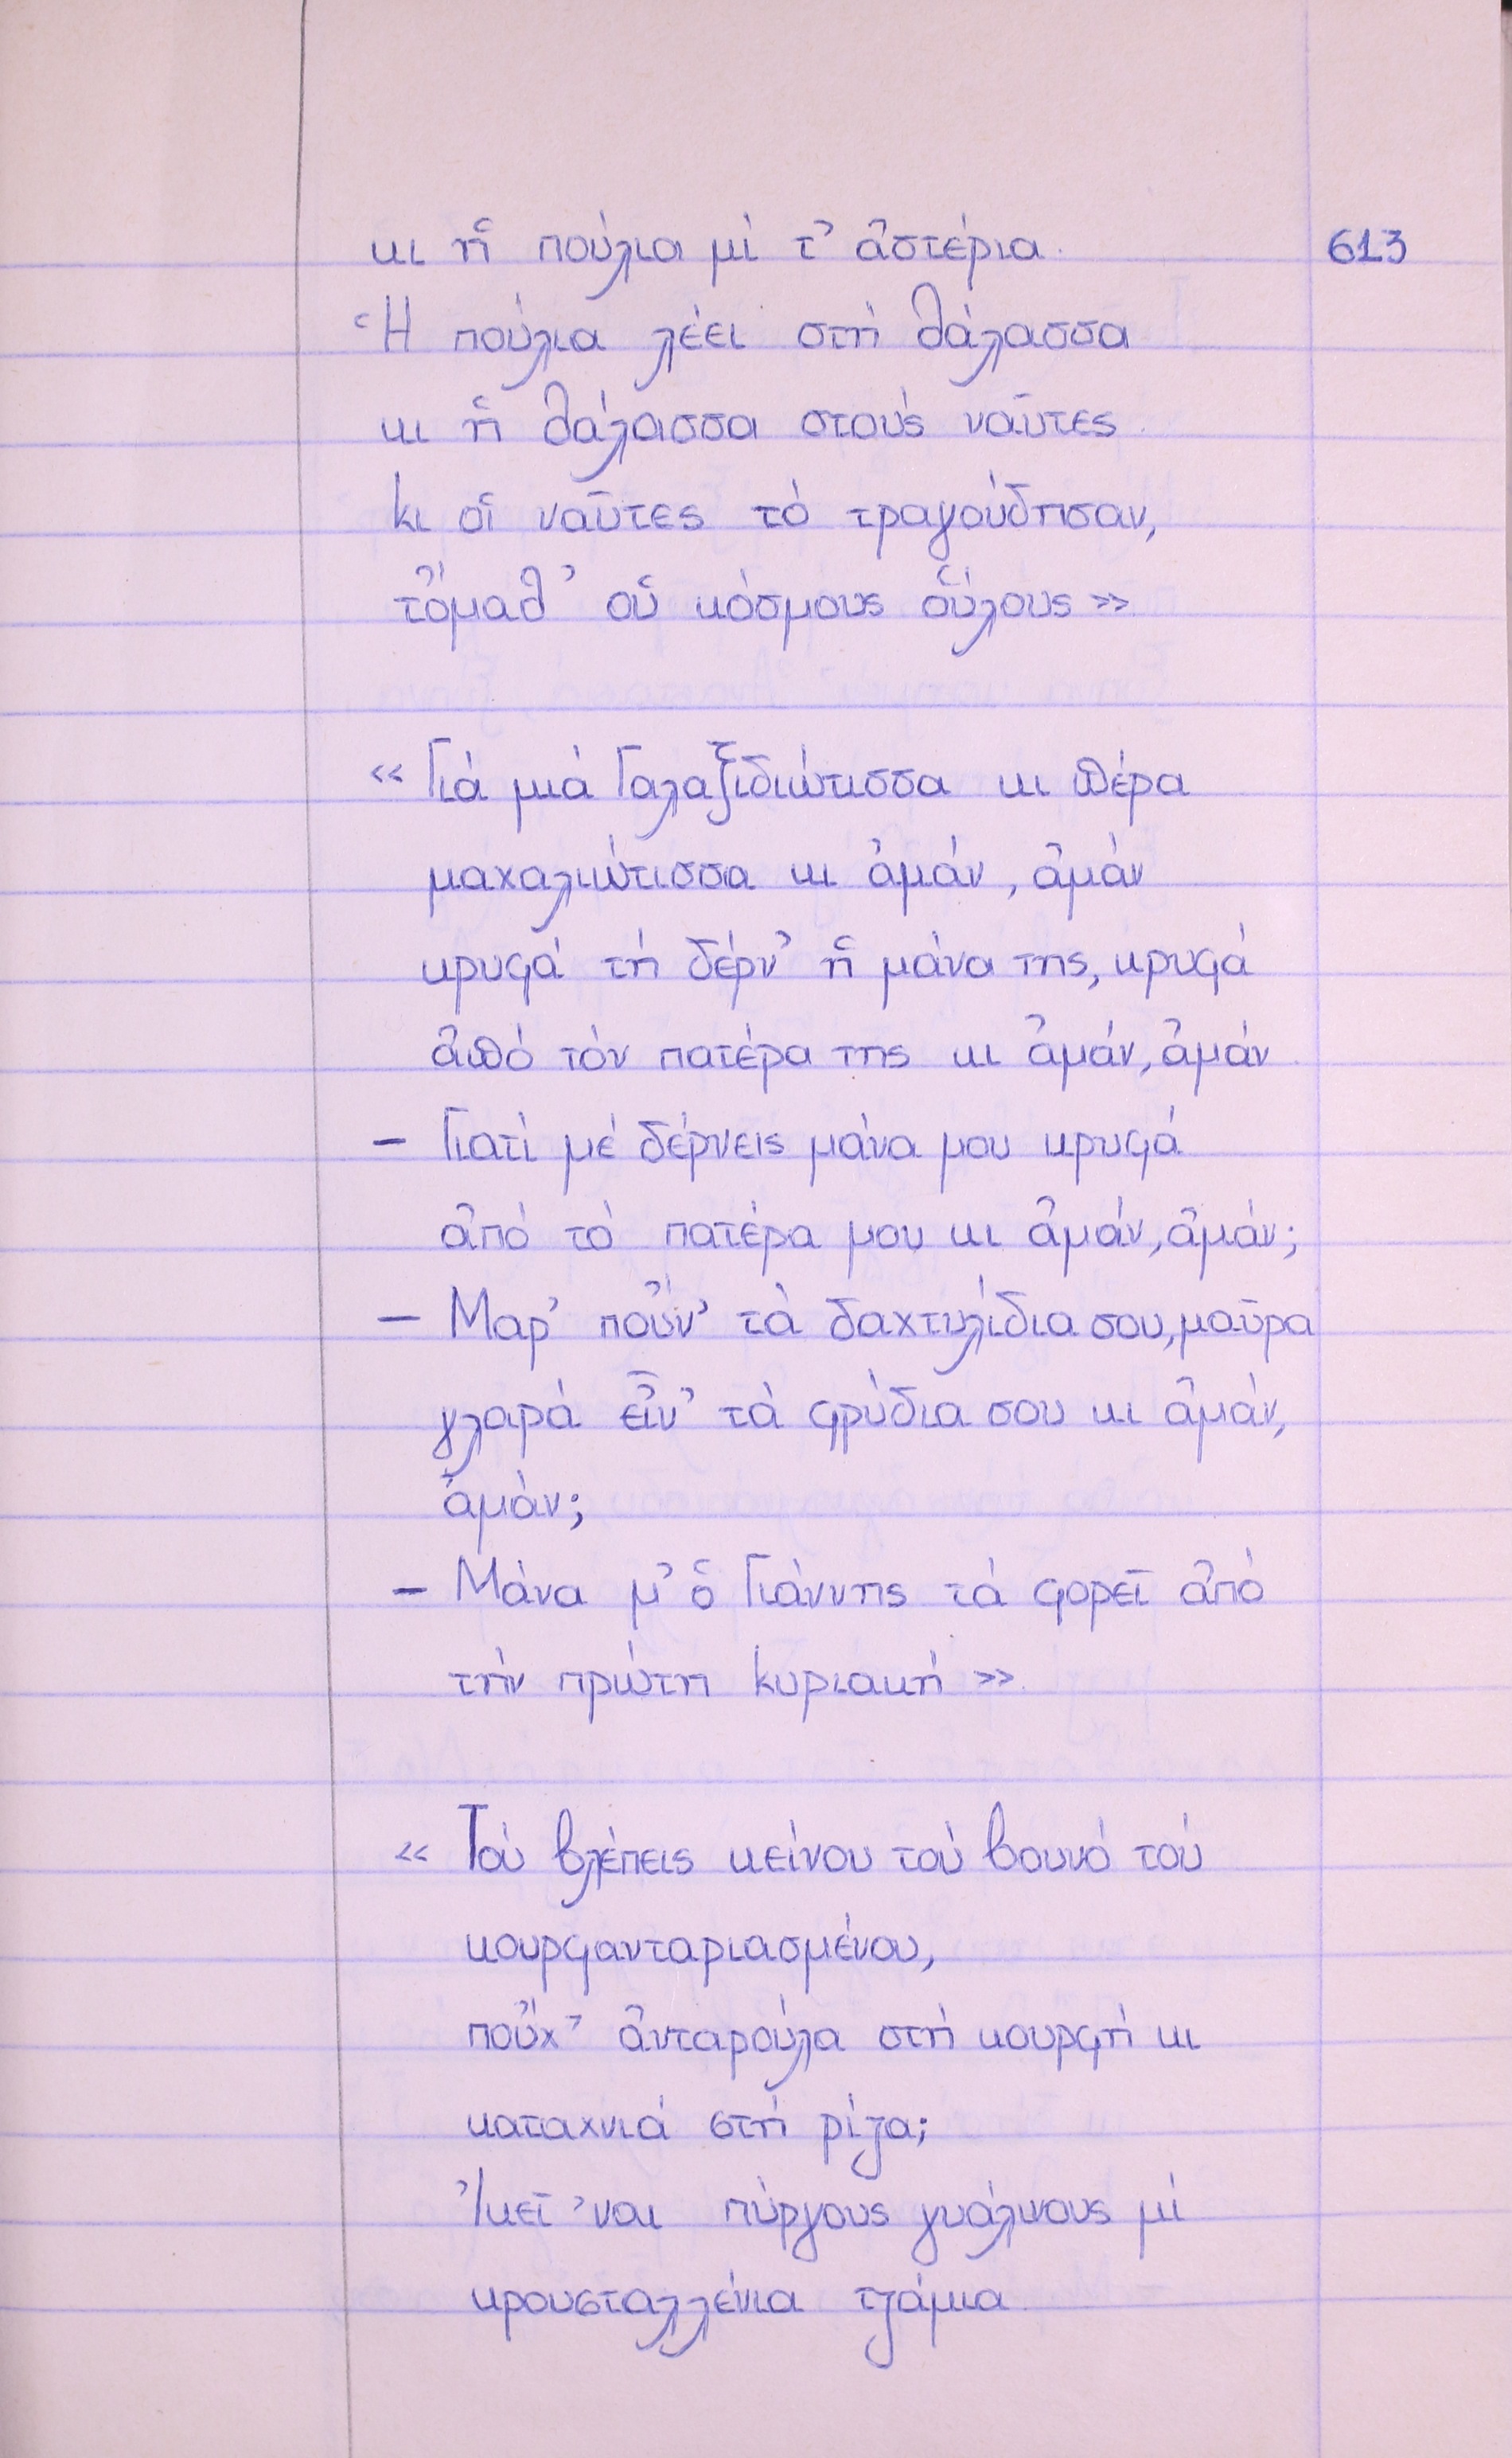 κι ἡ πούλια μὶ τ' ἀστέρια. 613
Ἡ πούλια λέει στή θάλασσα
κι ἡ θάλασσα στούς ναῦτες.
κι οἱ ναῦτες τό τραγούδησαν,
τὄμαθ' οὑ κόσμους οὕλους»
«Γιά μιά Γαλαξιδιώτισσα κι πέρα
μαχαλιώτισσα κι ἀμάν, ἀμάν
κρυφά τή δέρν' ἡ μάνα της, κρυφά
ἀπό τόν πατέρα της κι ἀμάν, ἀμάν.
– Γιατί μέ δέρνεις μάνα μου κρυφά
ἀπό τό πατέρα μου κι ἀμάν, ἀμάν;
– Μαρ' ποὖν' τὰ δαχτυλίδια σου, μαῦρα
γλαρά εἶν' τὰ φρύδια σου κι ἀμάν,
ἀμάν;
– Μάνα μ' ὁ Γιάννης τά φορεῖ ἀπό
τήν πρώτη Κυριακή».
«Τού βλέπεις κείνου τού βουνό τού
κουρφανταριασμένου,
ποὔχ' ἀνταρούλα στή κουρφή κι
καταχνιά στή ρίζα;
Ἰκεῖ 'ναι πύργους γυάλινους μὶ
κρουσταλλένια τζάμια.